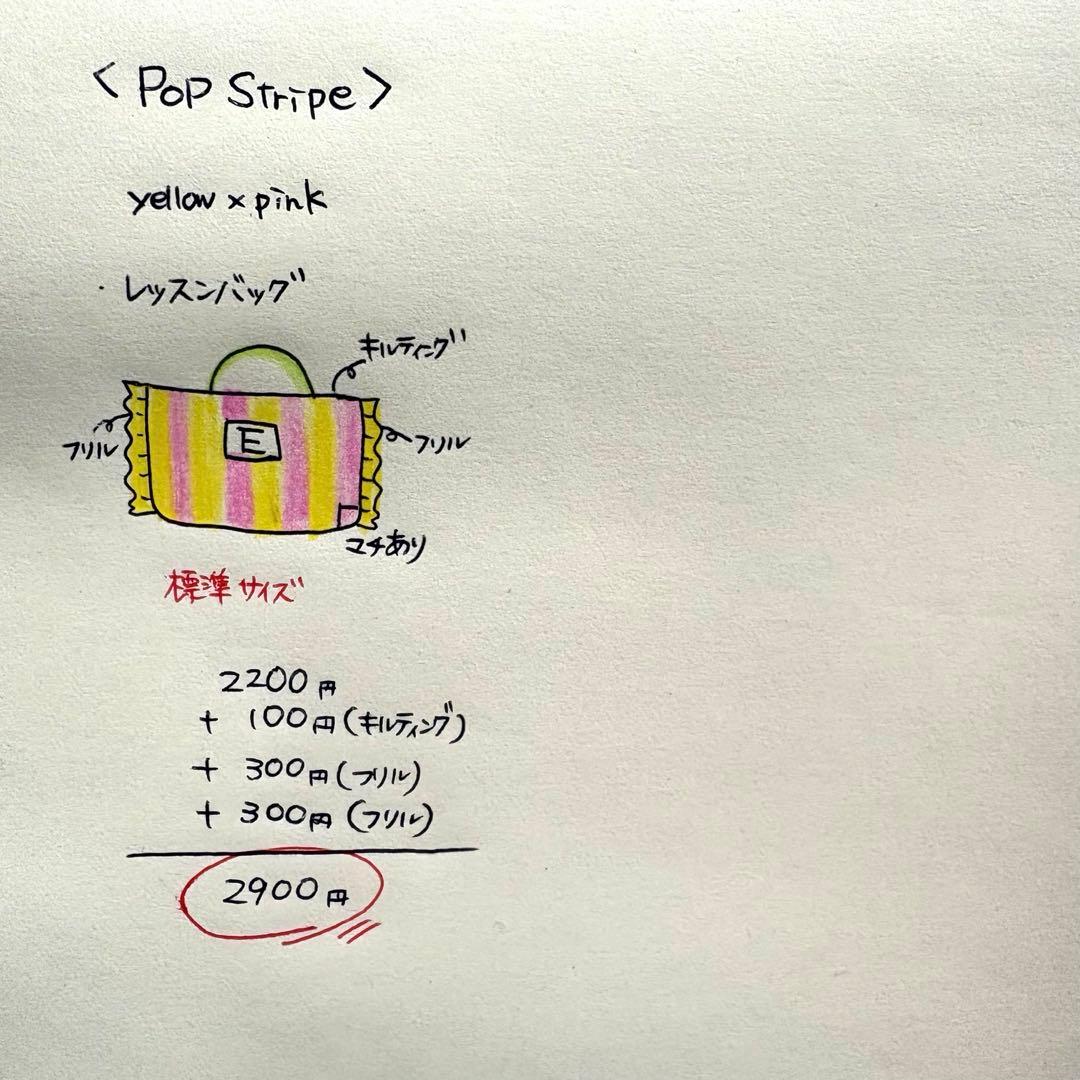 < POP Stripe >
yellow × pink
・レッスンバッグ
キルティング
フリル
E
フリル
マチあり
標準サイズ
2200円
+ 100円(キルティング)
+ 300円(フリル)
+ 300円(フリル)
2900円